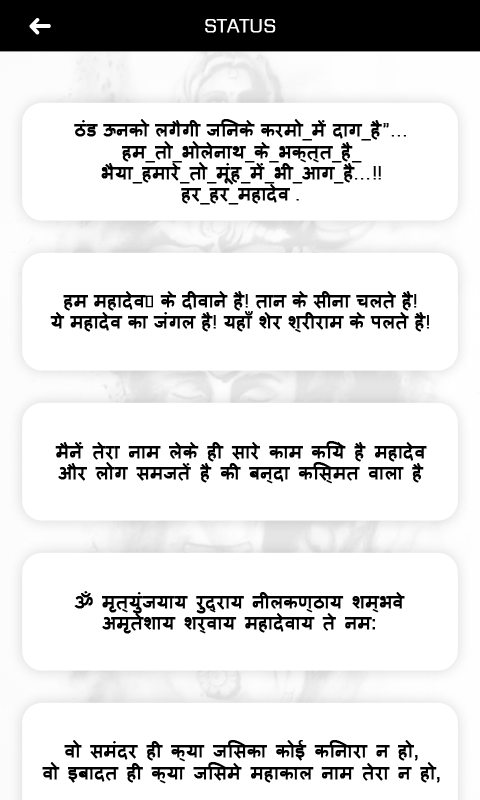 STATUS
ठंड ऊनको लगैगी जिनके करमो_में दाग_है”...
हम_तो_भोलेनाथ_के_भक्त्त_है_
भैया_हमारे_तो_मूंह_में_भी_आग_है...!!
हर_हर_महादेव .
हम महादेव के दीवाने है! तान के सीना चलते है!
ये महादेव का जंगल है! यहाँ शेर श्रीराम के पलते है!
मैनें तेरा नाम लेके ही सारे काम किये है महादेव
और लोग समजतें है की बन्दा किस्मत वाला है
ॐ मृत्युंजयाय रुद्राय नीलकण्ठाय शम्भवे
अमृतेशाय शर्वाय महादेवाय ते नम:
वो समंदर ही क्या जिसका कोई किनारा न हो,
वो इबादत ही क्या जिसमे महाकाल नाम तेरा न हो,